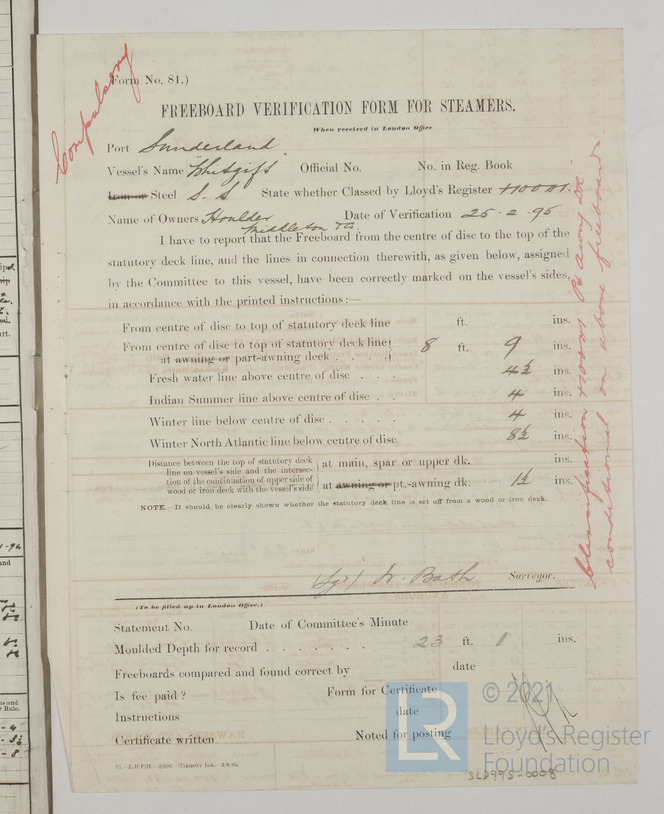 Compulsory
Form No. 81.)
FREEBOARD VERIFICATION FORM FOR STEAMERS.
When received in London Office
Port Sunderland
Vessel's Name "Whitgift Official No. No. in Reg. Book
Iron or Steel S.S State whether Classed by Lloyd's Register +100A1.
Name of Owners Houlder Middleton & Co. Date of Verification 25-2-95
I have to report that the Freeboard from the centre of disc to the top of the
statutory deck line, and the lines in connection therewith, as given below, assigned
by the Committee to this vessel, have been correctly marked on the vessel's sides,
in accordance with the printed instructions:—
From centre of disc to top of statutory deck line ft. ins.
From centre of disc to top of statutory deck line
at awning or part-awning deck . . . . 8 ft. 9 ins.
Fresh water line above centre of disc . . . 4½ ins.
Indian Summer line above centre of disc . . 4 ins.
Winter line below centre of disc . . . . . 4 ins.
Winter North Atlantic line below centre of disc 8½ ins.
Distance between the top of statutory deck
line on vessel's side and the intersec-
tion of the continuation of upper side of
wood or iron deck with the vessel's side
at main, spar or upper dk. ins.
at awning or pt.-awning dk. 1½ ins.
NOTE.—It should be clearly shown whether the statutory deck line is set off from a wood or iron deck.
Classification +100A1 Pt awng dk
conditional on above freeboard
(Sgd) W. Bath Surveyor.
(To be filled up in London Office.)
Statement No. Date of Committee's Minute
Moulded Depth for record . . . . . . . 23 ft. 1 ins.
Freeboards compared and found correct by date
Is fee paid? Form for Certificate
Instructions date
Certificate written Noted for posting
© 2021
Lloyd's Register
Foundation
LR
SLD995-0008